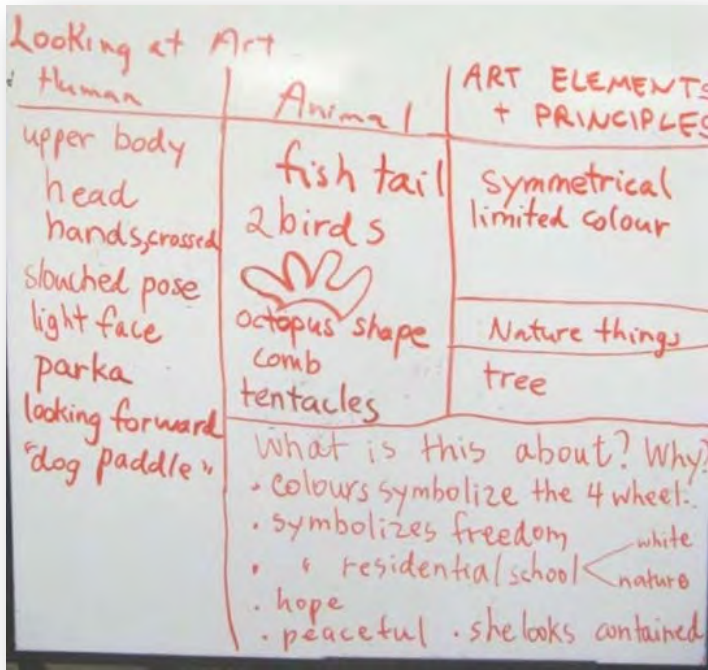 Looking at Art
Human
upper body
head
hands, crossed
slouched pose
light face
parka
looking forward
"dog paddle"
Animal
fish tail
2 birds
octopus shape
comb
tentacles
ART ELEMENTS
+ PRINCIPLES
symmetrical
limited colour
Nature things
tree
What is this about? Why?
• colours symbolize the 4 wheel..
• symbolizes freedom
• " residential school < white
nature
• hope
• peaceful • she looks contained